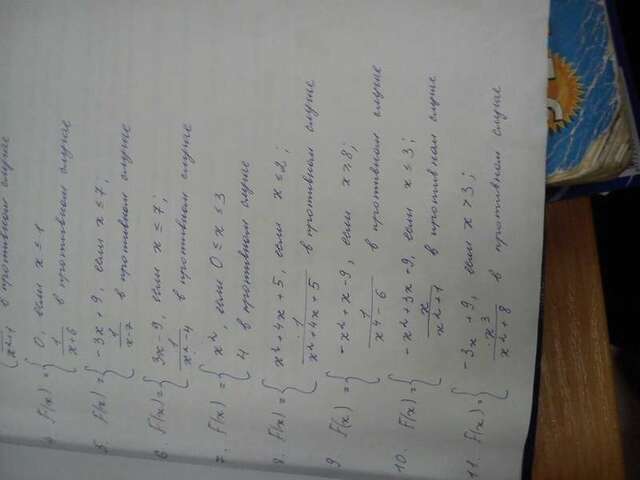 x²+1 в противном случае
4. F(x) = { 0, если x ≤ -1
1/(x+6) в противном случае
5. F(x) = { -3x + 9, если x ≤ 7;
1/(x-7) в противном случае
6. F(x) = { 3x - 9, если x ≤ 7;
1/(x²-4) в противном случае
7. F(x) = { x², если 0 ≤ x ≤ 3
4 в противном случае
8. F(x) = { x² + 4x + 5, если x ≤ 2;
1/(x²+4x+5) в противном случае
9. F(x) = { -x² + x - 9, если x ≥ 8;
1/(x⁴-6) в противном случае
10. F(x) = { -x² + 3x - 9, если x ≤ 3;
x/(x²+1) в противном случае
11. F(x) = { -3x + 9, если x > 3;
x³/(x²+8) в противном случае